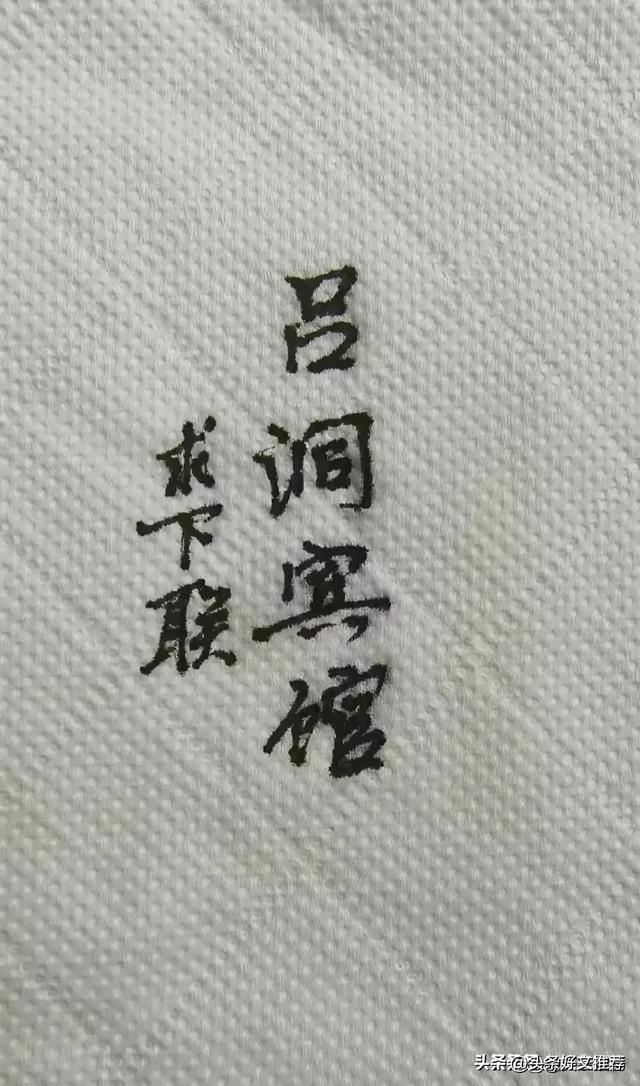 吕洞宾馆
求下联
头条 @头条好文推荐